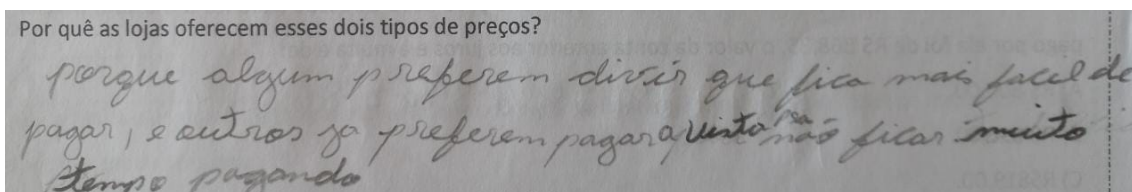 Por quê as lojas oferecem esses dois tipos de preços?
porque algum preferem divir que fica mais facel de
pagar, e outros ja preferem pagar a vista pra não ficar muito
tempo pagando